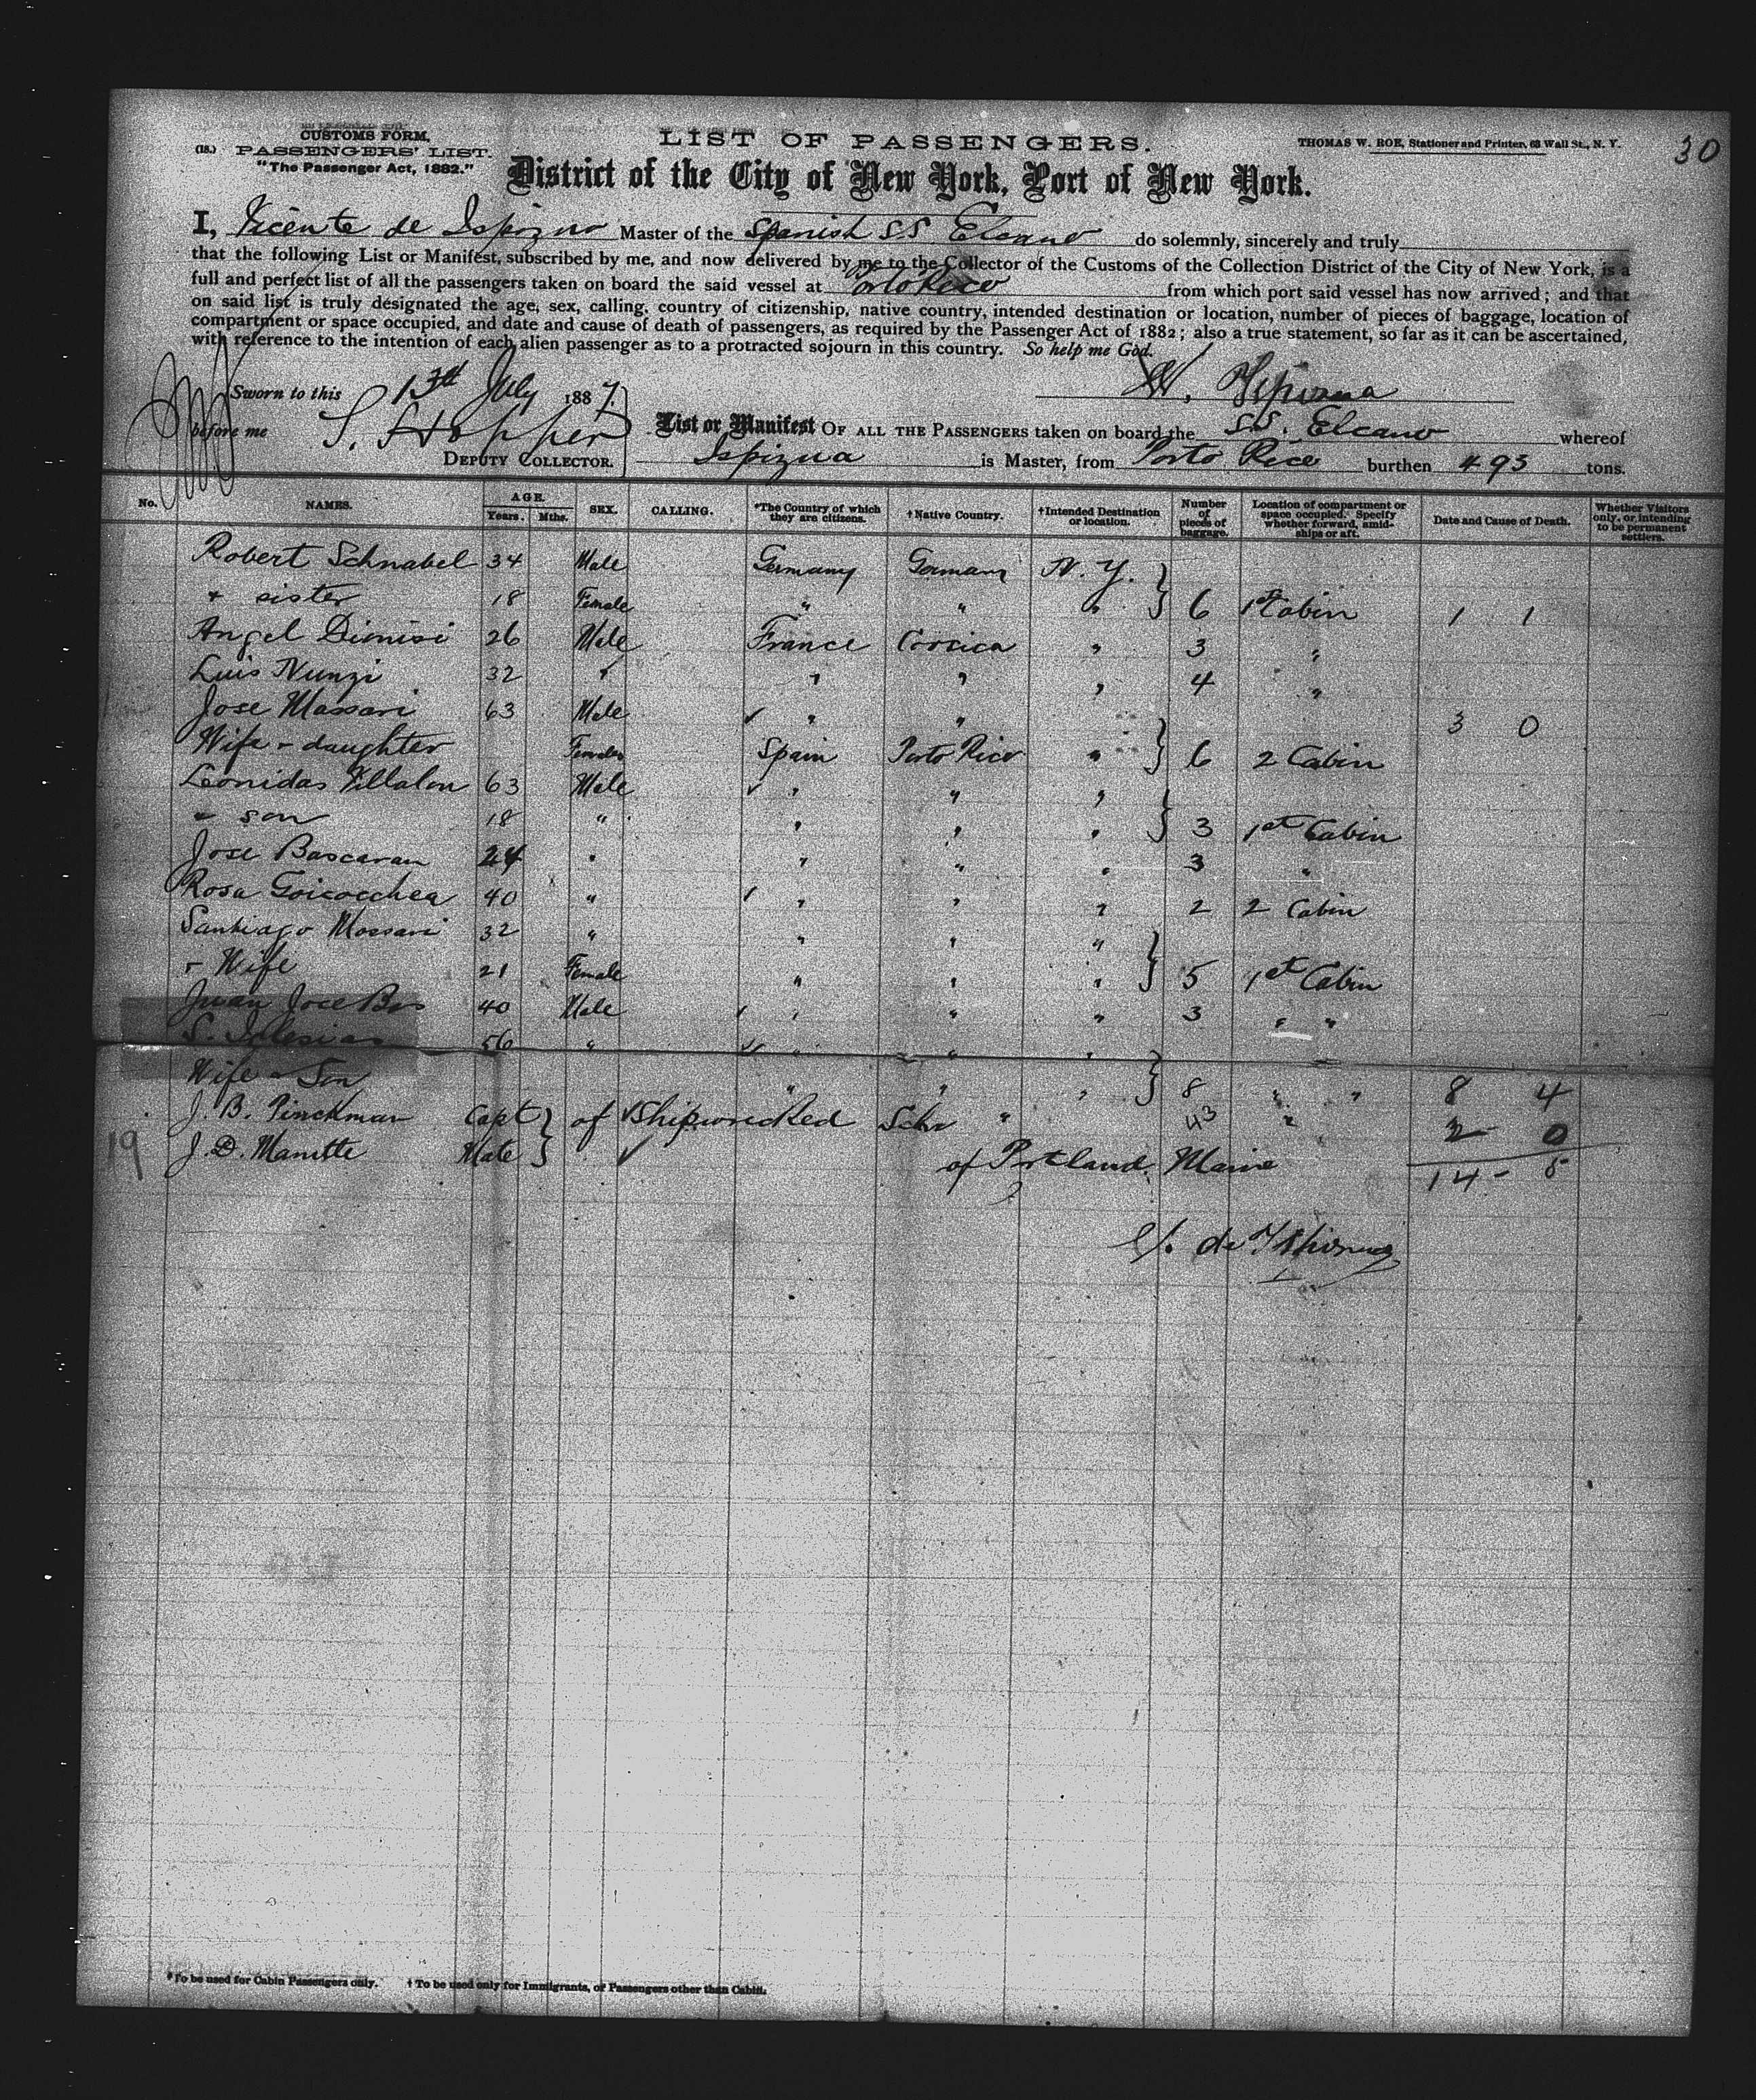 30
CUSTOMS FORM.
(18.) PASSENGERS' LIST.
"The Passenger Act, 1882."
LIST OF PASSENGERS.
THOMAS W. ROE, Stationer and Printer, 63 Wall St., N. Y.
District of the City of New York, Port of New York.
I, Vicente de Ispizua Master of the Spanish SS Elcano do solemnly, sincerely and truly
that the following List or Manifest, subscribed by me, and now delivered by me to the Collector of the Customs of the Collection District of the City of New York, is a
full and perfect list of all the passengers taken on board the said vessel at Porto Rico from which port said vessel has now arrived; and that
on said list is truly designated the age, sex, calling, country of citizenship, native country, intended destination or location, number of pieces of baggage, location of
compartment or space occupied, and date and cause of death of passengers, as required by the Passenger Act of 1882; also a true statement, so far as it can be ascertained,
with reference to the intention of each alien passenger as to a protracted sojourn in this country. So help me God.
Sworn to this 13th July 1887.
before me S. Hopper
DEPUTY COLLECTOR.
List or Manifest OF ALL THE PASSENGERS taken on board the S.S. Elcano whereof
Ispizua is Master, from Porto Rico burthen 493 tons.
No. NAMES. AGE. Years. Mths. SEX. CALLING. *The Country of which they are citizens. †Native Country. †Intended Destination or location. Number of pieces of baggage. Location of compartment or space occupied. Specify whether forward, amidships or aft. Date and Cause of Death. Whether Visitors only, or intending to be permanent settlers.
Robert Schnabel 34 Male Germany Germany N. Y.
+ sister 18 Female " " " 6 1st Cabin 1 1
Angel Dionisi 26 Male France Corsica " 3 "
Luis Nunzi 32 " " " " 4 "
Jose Massari 63 Male " " 3 0
Wife + daughter Females Spain Porto Rico " 6 2 Cabin
Leonidas Villalon 63 Male " " "
+ son 18 " " " " 3 1st Cabin
Jose Bascaran 24 " " " " 3 "
Rosa Goicocchea 40 " " " " 2 2 Cabin
Santiago Massari 32 " " " "
+ Wife 21 Female " " " 5 1st Cabin
Juan Jose Bas 40 Male " " " 3 " "
S. Iglesias 56 " " " "
Wife + Son " " " 8 " " 8 4
J. B. Pinckman Capt of Shipwrecked Schr " 43 " 2 0
19 J. D. Manette Mate of Portland, Maine 14 - 5
*To be used for Cabin Passengers only. †To be used only for Immigrants, or Passengers other than Cabin.